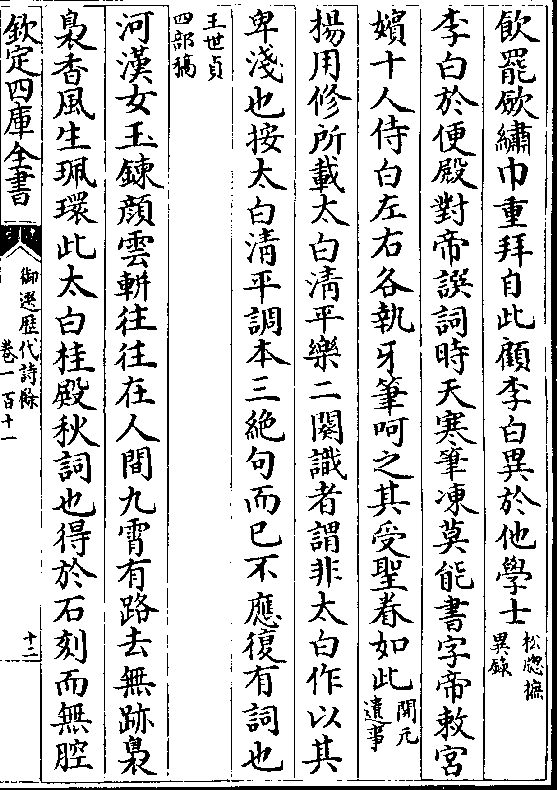 飲罷歛繡巾重拜自此顧李白異於他學士松牕摭異錄
李白於便殿對帝譔詞時天寒筆凍莫能書字帝敕宮
嬪十人侍白左右各執牙筆呵之其受聖眷如此開元遺事
揚用修所載太白清平樂二闋識者謂非太白作以其
卑淺也按太白清平調本三絶句而已不應復有詞也
王世貞四部稿
河漢女玉鍊顔雲軿往往在人間九霄有路去無跡裊
裊香風生珮環此太白桂殿秋詞也得於石刻而無腔
欽定四庫全書
御選歷代詩餘
卷一百十一
十二